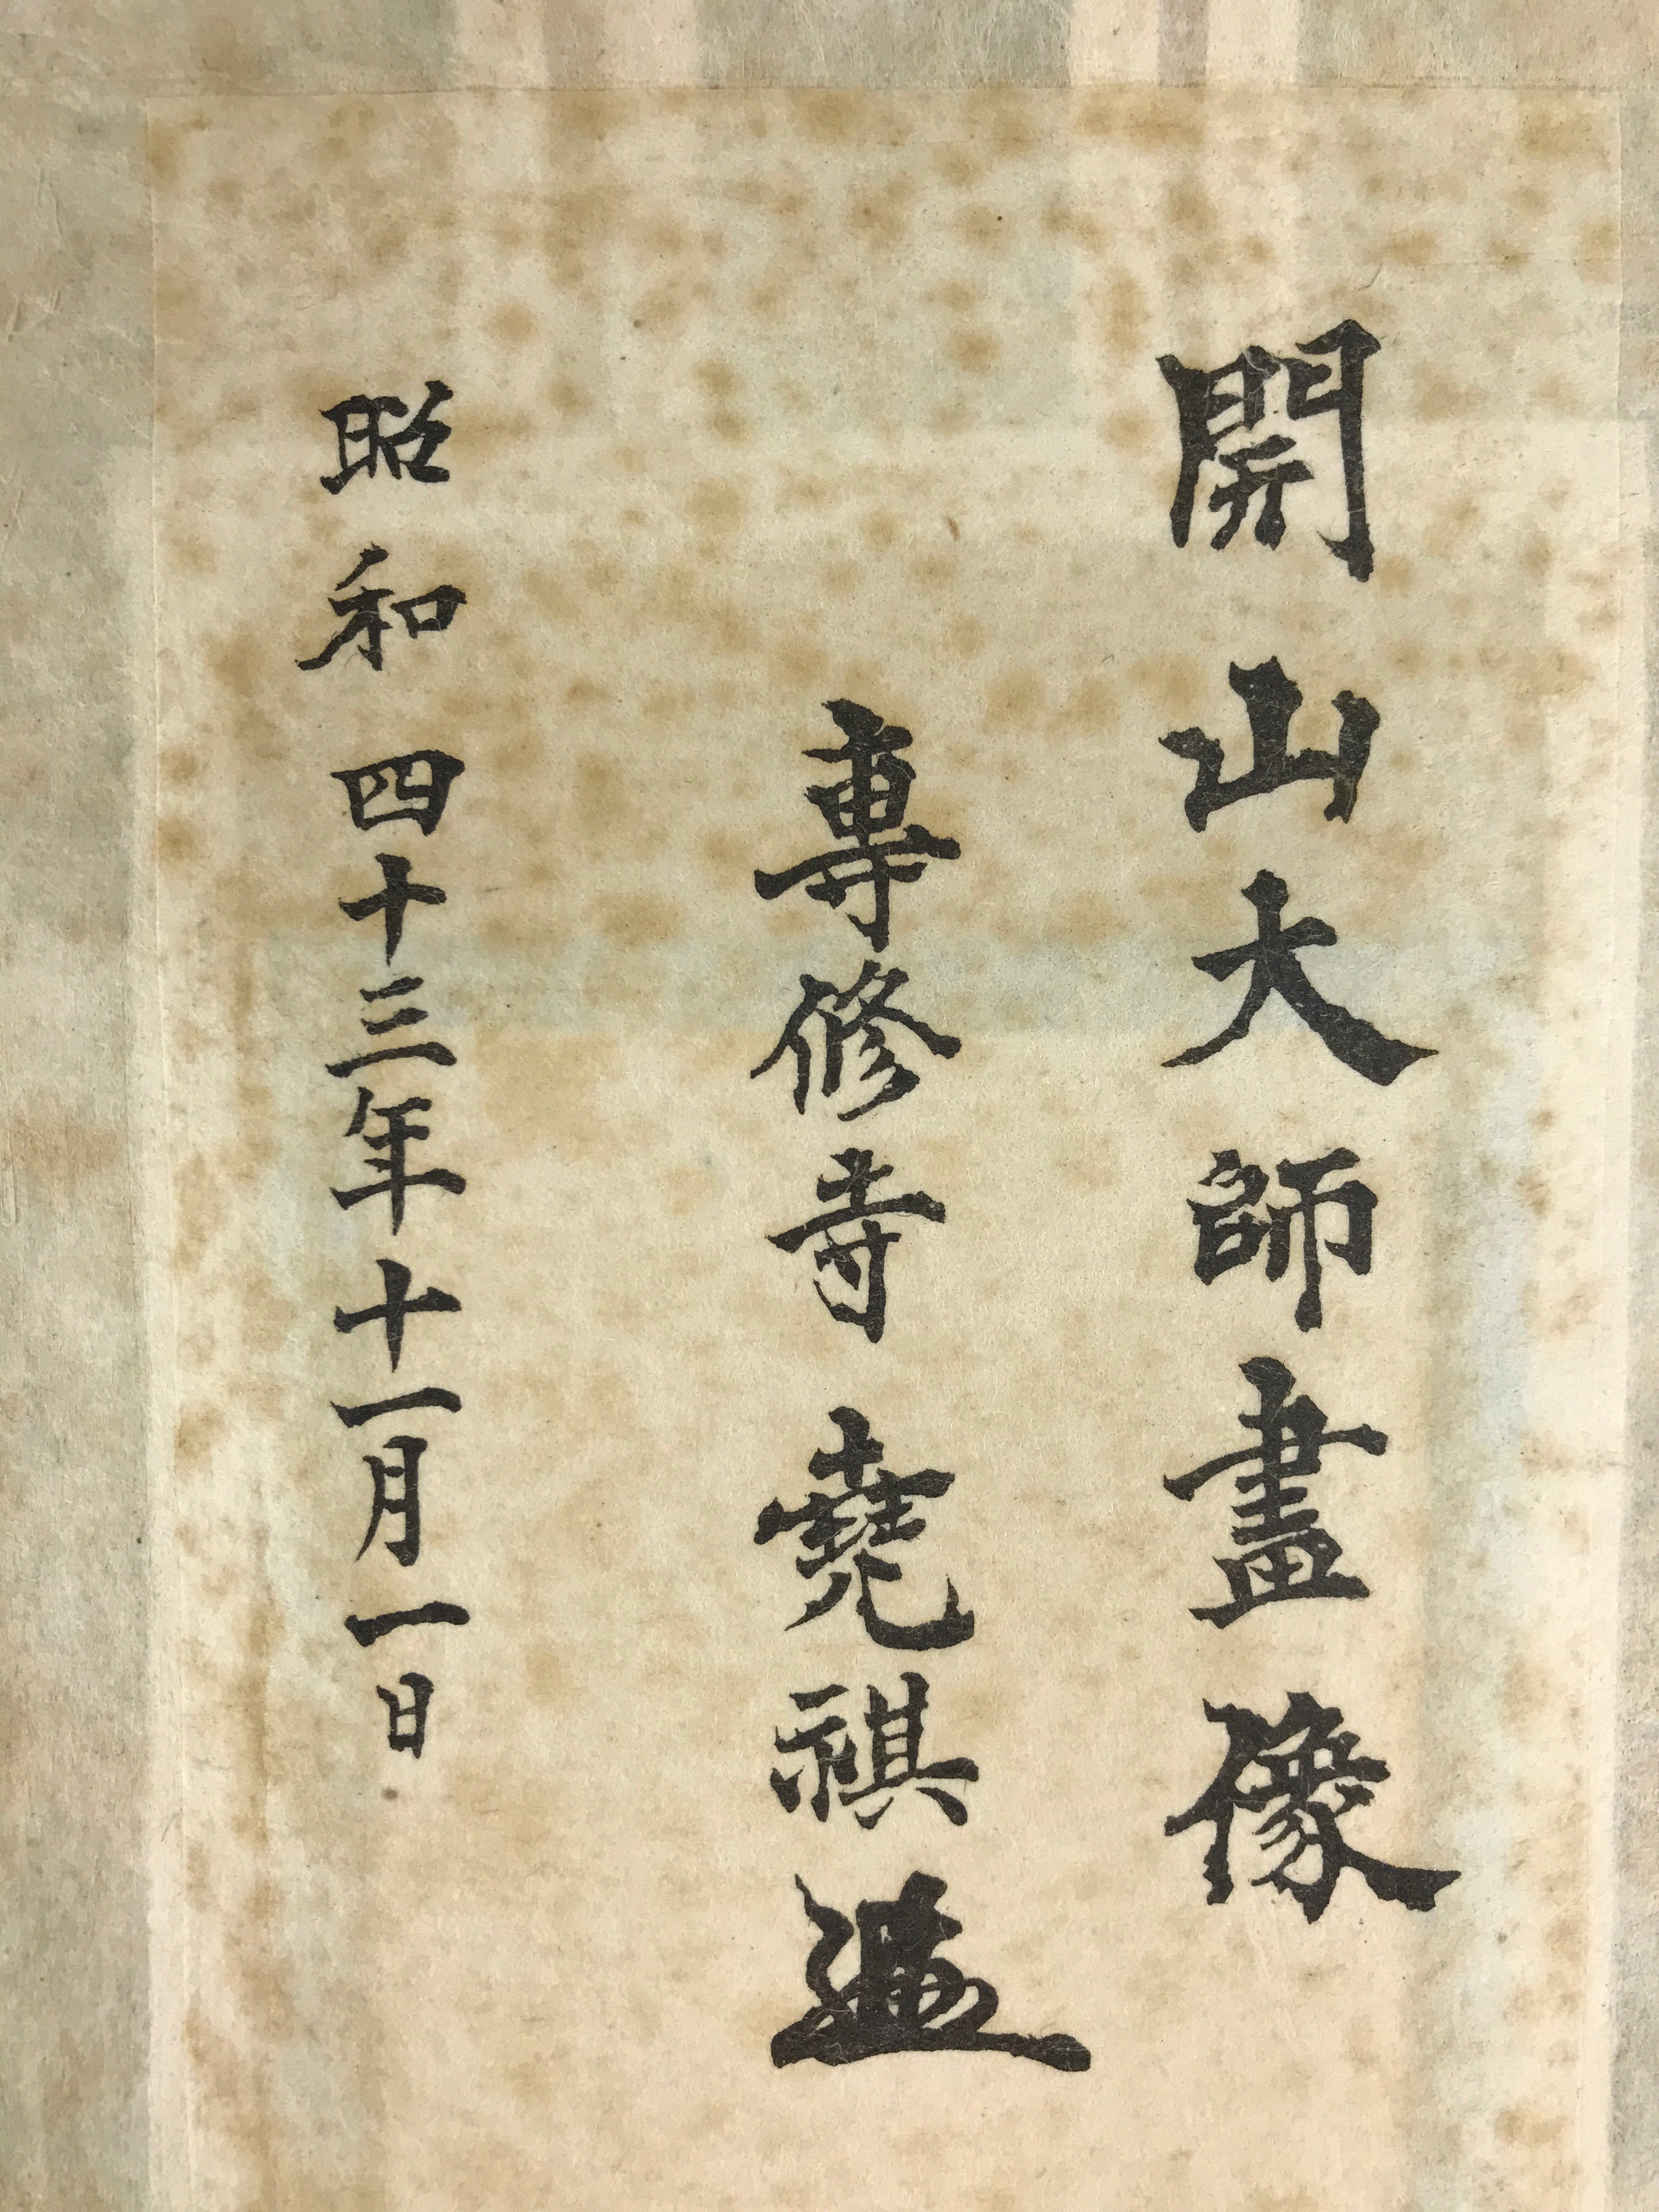 開山大師畫像
專修寺堯祺
昭和四十三年十一月一日